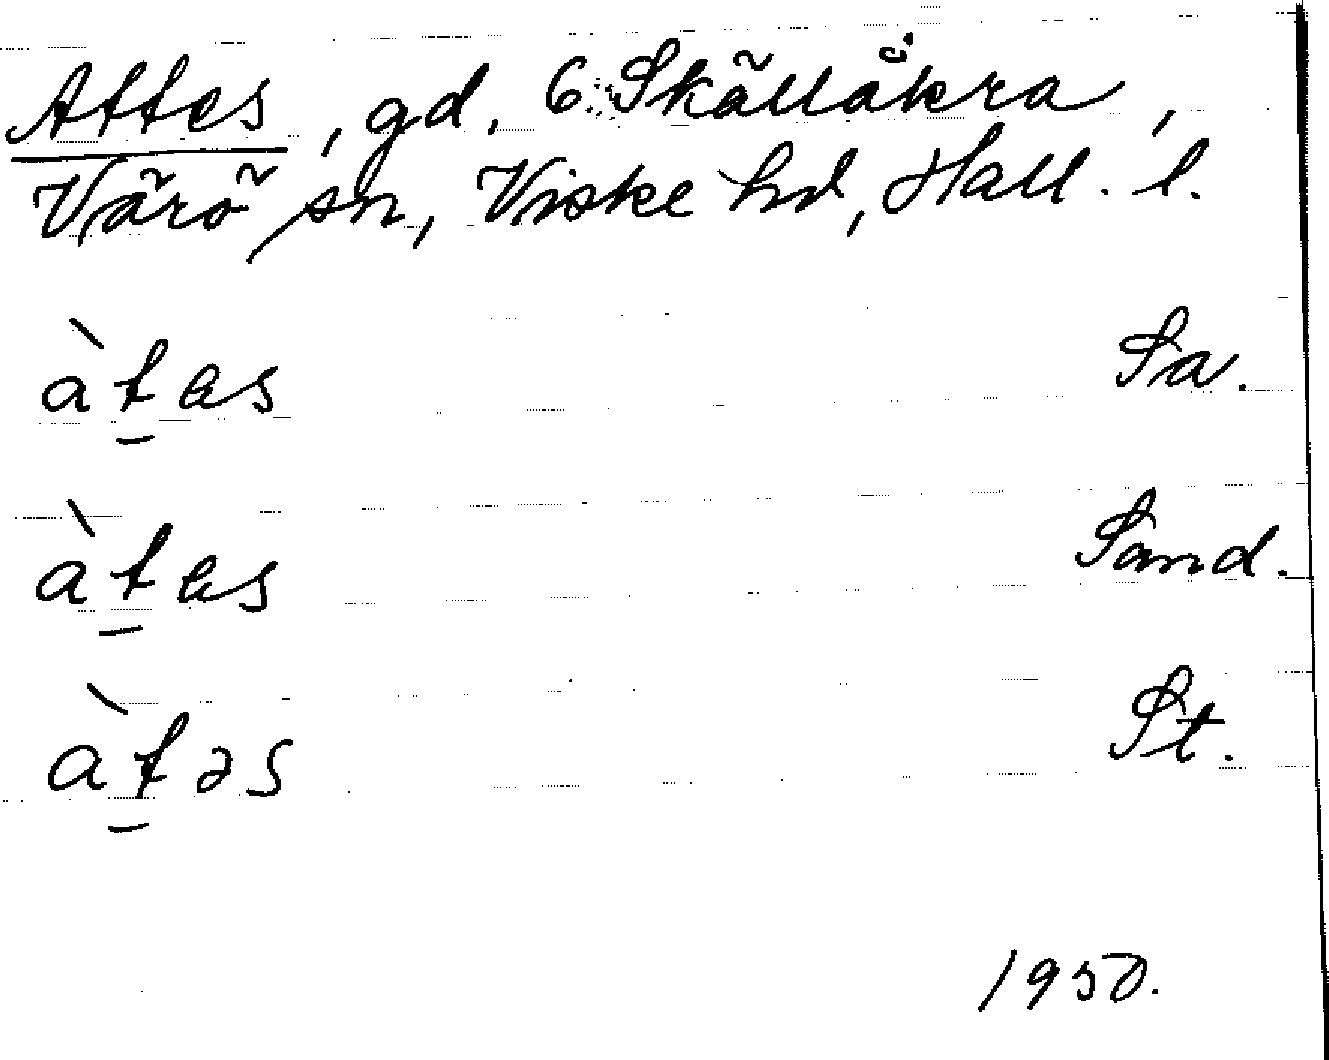 Attes, gd. 6 Skällåkra,
Värö sn, Viske hd, Hall. l.
àt̠es Sa.
àt̠es Sand.
àt̠əs St.
1950.